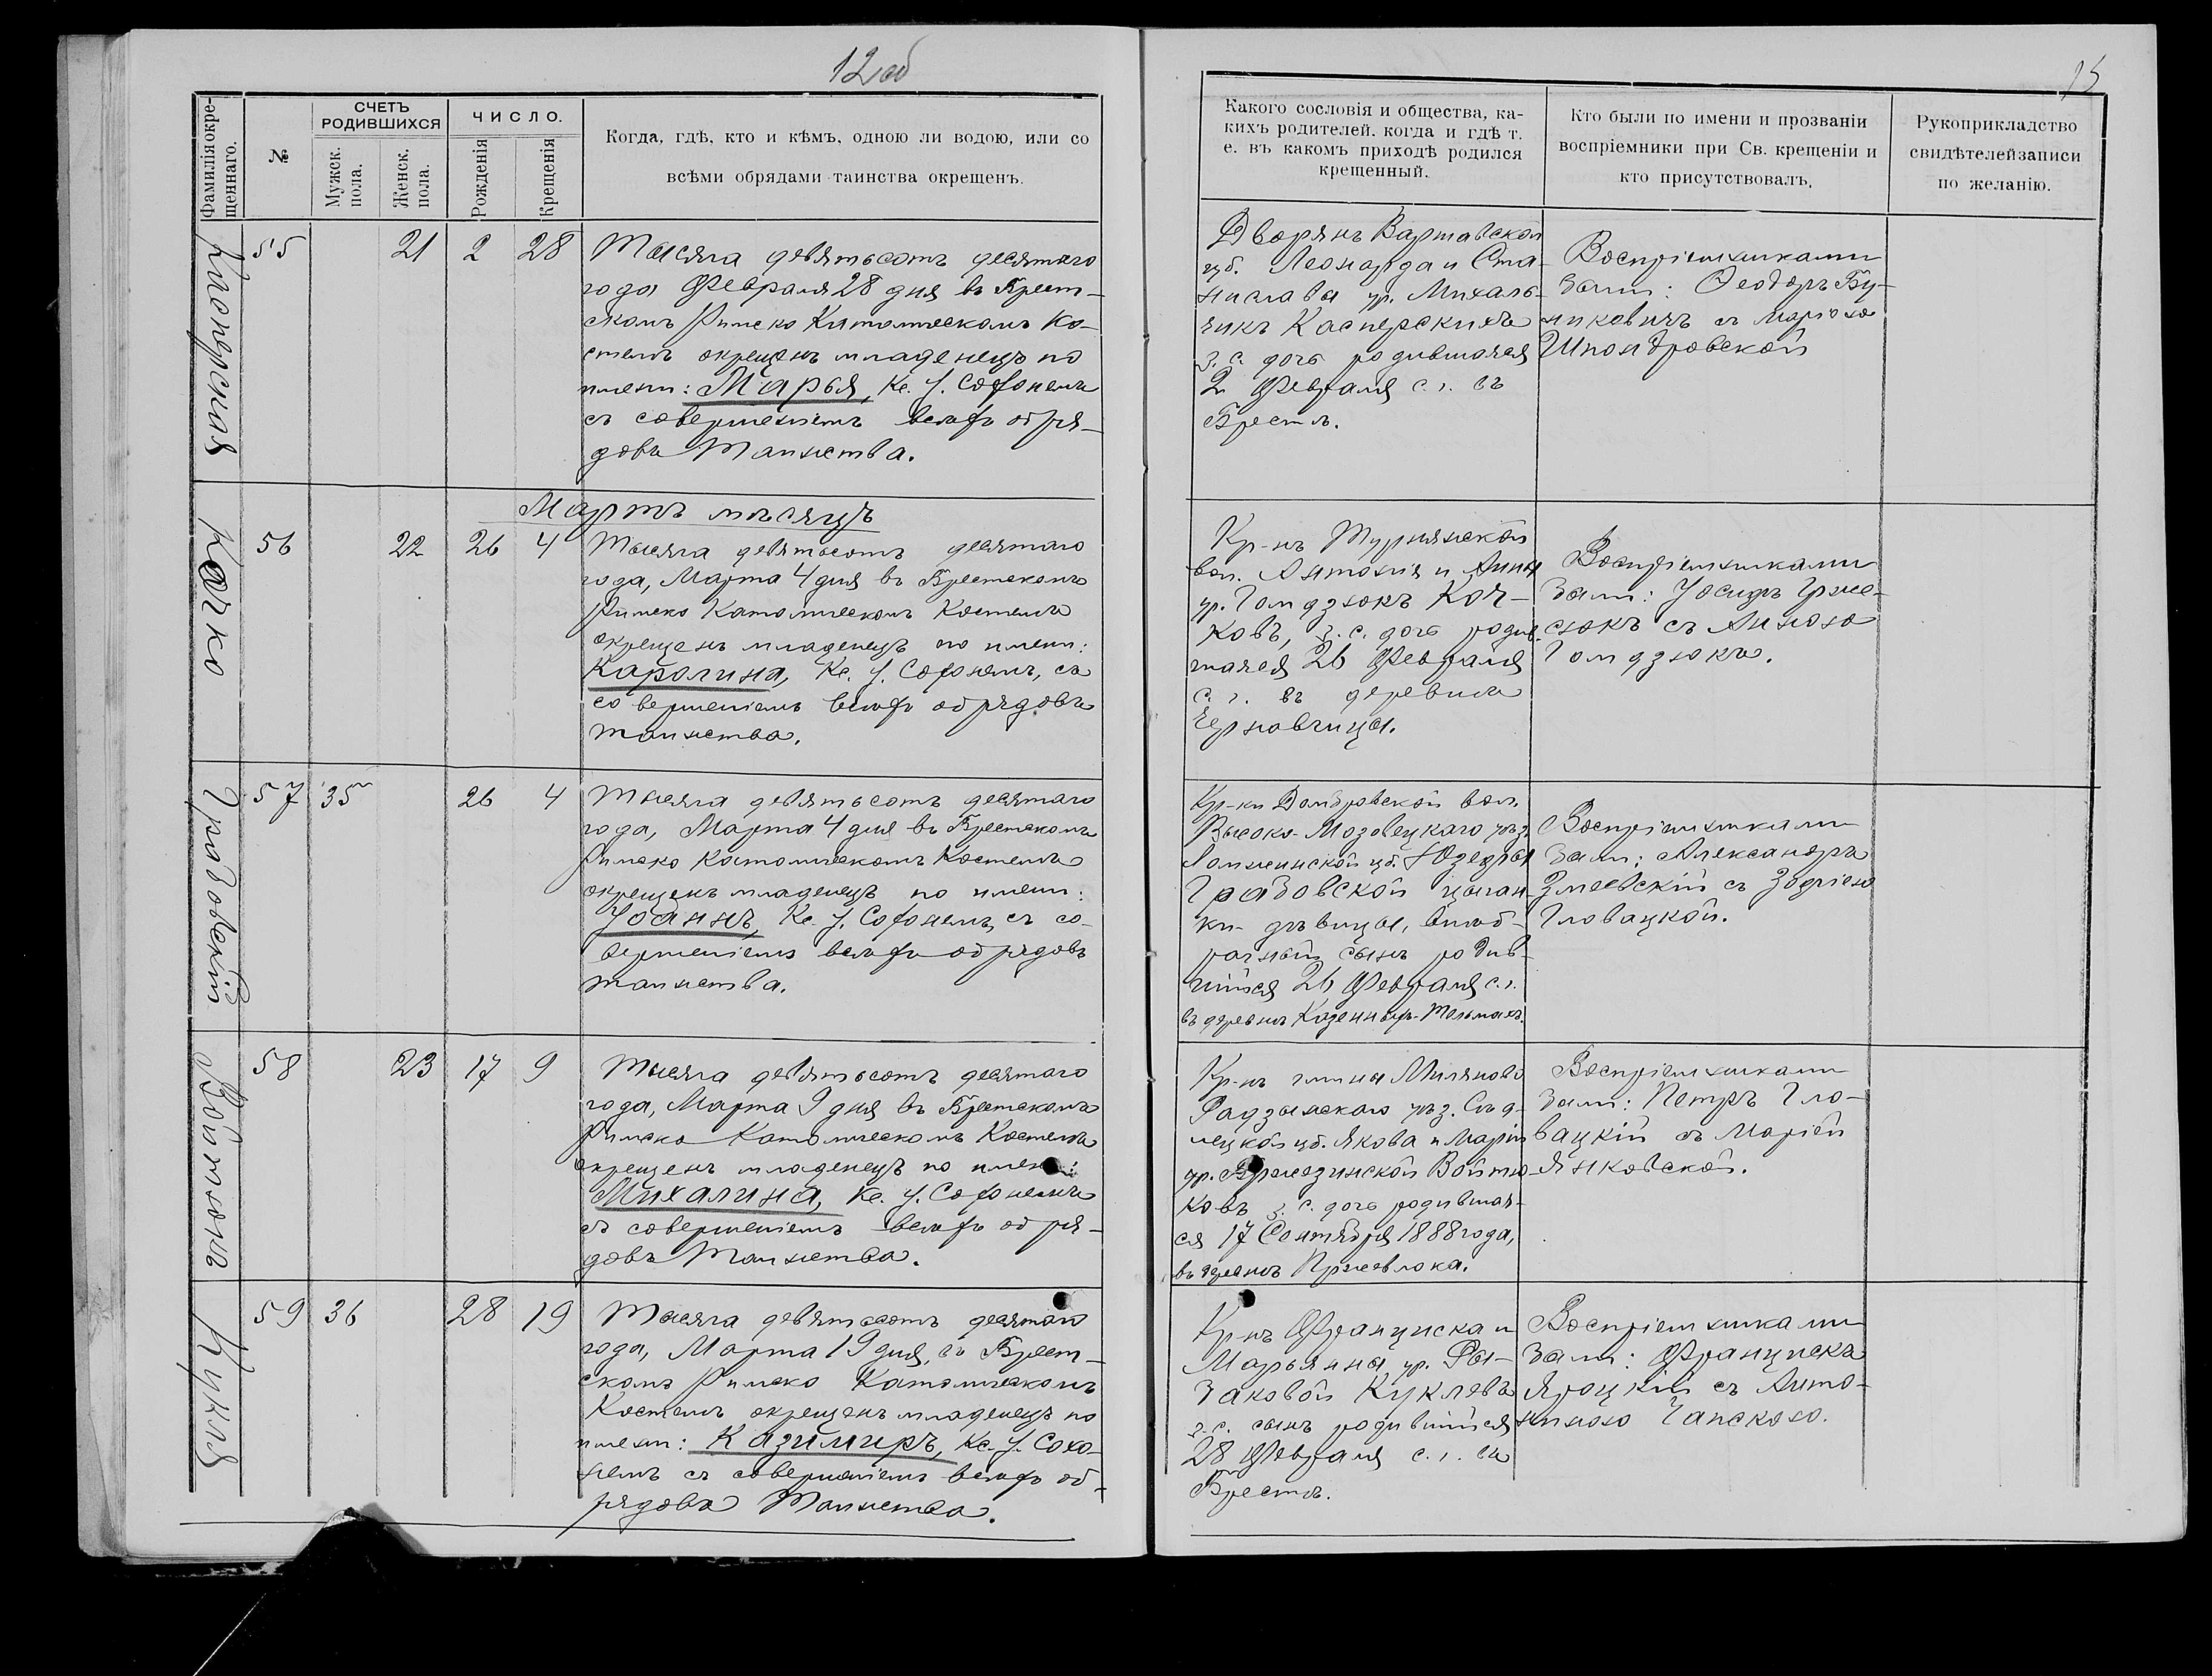 12об
15
Фамилія окре-
щеннаго.
№
СЧЕТЪ
РОДИВШИХСЯ
Мужск.
пола.
Женск.
пола.
ЧИСЛО.
Рожденія
Крещенія
Когда, гдѣ, кто и кѣмъ, одною ли водою, или со
всѣми обрядами таинства окрещенъ.
Какого сословія и общества, ка-
кихъ родителей. когда и гдѣ т.
е. въ какомъ приходѣ родился
крещенный.
Кто были по имени и прозванію
воспріемники при Св. крещеніи и
кто присутствовалъ.
Рукоприкладство
свидѣтелей записи
по желанію.
55 21 2 28
Тысяча девятьсотъ десятаго
года Февраля 28 дня въ Брест-
скомъ Римско Католическомъ Ко-
стелѣ окрещенъ младенецъ по
имени: Марья, Кс. І.
съ совершеніемъ всѣхъ обря-
довъ Таинства.
Дворянъ Варшавской
губ. Леонарда и Ста-
ниславы ур. Михаль-
чикъ Касперскихъ
з. с. дочь родившаяся
2 Февраля с. г. въ
Брестѣ.
Воспріемниками
были: Ѳеодоръ Бу-
никевичъ съ Маріею
Шпондровской
Мартъ мѣсяцъ
Кочко
56 22 26 4
Тысяча девятьсотъ десятаго
года, Марта 4 дня въ Брестскомъ
Римско Католическомъ Костелѣ
окрещенъ младенецъ по имени:
Каролина, Кс. І. съ
совершеніемъ всѣхъ обрядовъ
таинства.
Кр-нъ Турнянской
вол. Антонія и Анны
ур. Гомдзюкъ Коч-
ковъ, з. с. дочь родив-
шаяся 26 Февраля
с. г. въ деревнѣ
Чернавчицы.
Воспріемниками
были: Іосифъ
съ Анною
Гомдзюкъ.
Грабовскій
57 35 26 4
Тысяча девятьсотъ десятаго
года, Марта 4 дня въ Брестскомъ
Римско Католическомъ Костелѣ
окрещенъ младенецъ по имени:
Іоаннъ, Кс. І. съ со-
вершеніемъ всѣхъ обрядовъ
таинства.
Кр-ки Домбровской вол.
Высоко-Мазовецкаго уѣз.
Ломжинской губ. Юзефы
Грабовской цыган-
ки дѣвицы, внѣб-
рачный сынъ родив-
шійся 26 Февраля с. г.
въ деревнѣ
Воспріемниками
были: Александръ
Змѣевскій съ Зофіею
Гловацкой.
Войтюкъ
58 23 17 9
Тысяча девятьсотъ десятаго
года, Марта 9 дня въ Брестскомъ
Римско Католическомъ Костелѣ
окрещенъ младенецъ по имени:
Михалина, Кс. І.
съ совершеніемъ всѣхъ обря-
довъ Таинства.
Кр-нъ гмины Миляновъ
Радзынскаго уѣз. Сѣд-
лецкой губ. Якова и Маріи
ур. Бржезинской Войтю-
ковъ з. с. дочь родившая-
ся 17 Сентября 1888 года,
въ деревнѣ Пржевлока.
Воспріемниками
были: Петръ Гло-
вацкій съ Маріей
Янковской.
Кукля
59 36 28 19
Тысяча девятьсотъ десятаго
года, Марта 19 дня, въ Брест-
скомъ Римско Католическомъ
Костелѣ окрещенъ младенецъ по
имени: Казимиръ, Кс. І.
съ совершеніемъ всѣхъ об-
рядовъ Таинства.
Кр-нъ Франциска и
Марьянны ур. Ры-
баковой Куклевъ
з. с. сынъ родившійся
28 Февраля с. г. въ
Брестѣ.
Воспріемниками
были: Францискъ
Яроцкій съ Анто-
ниною Чапскою.